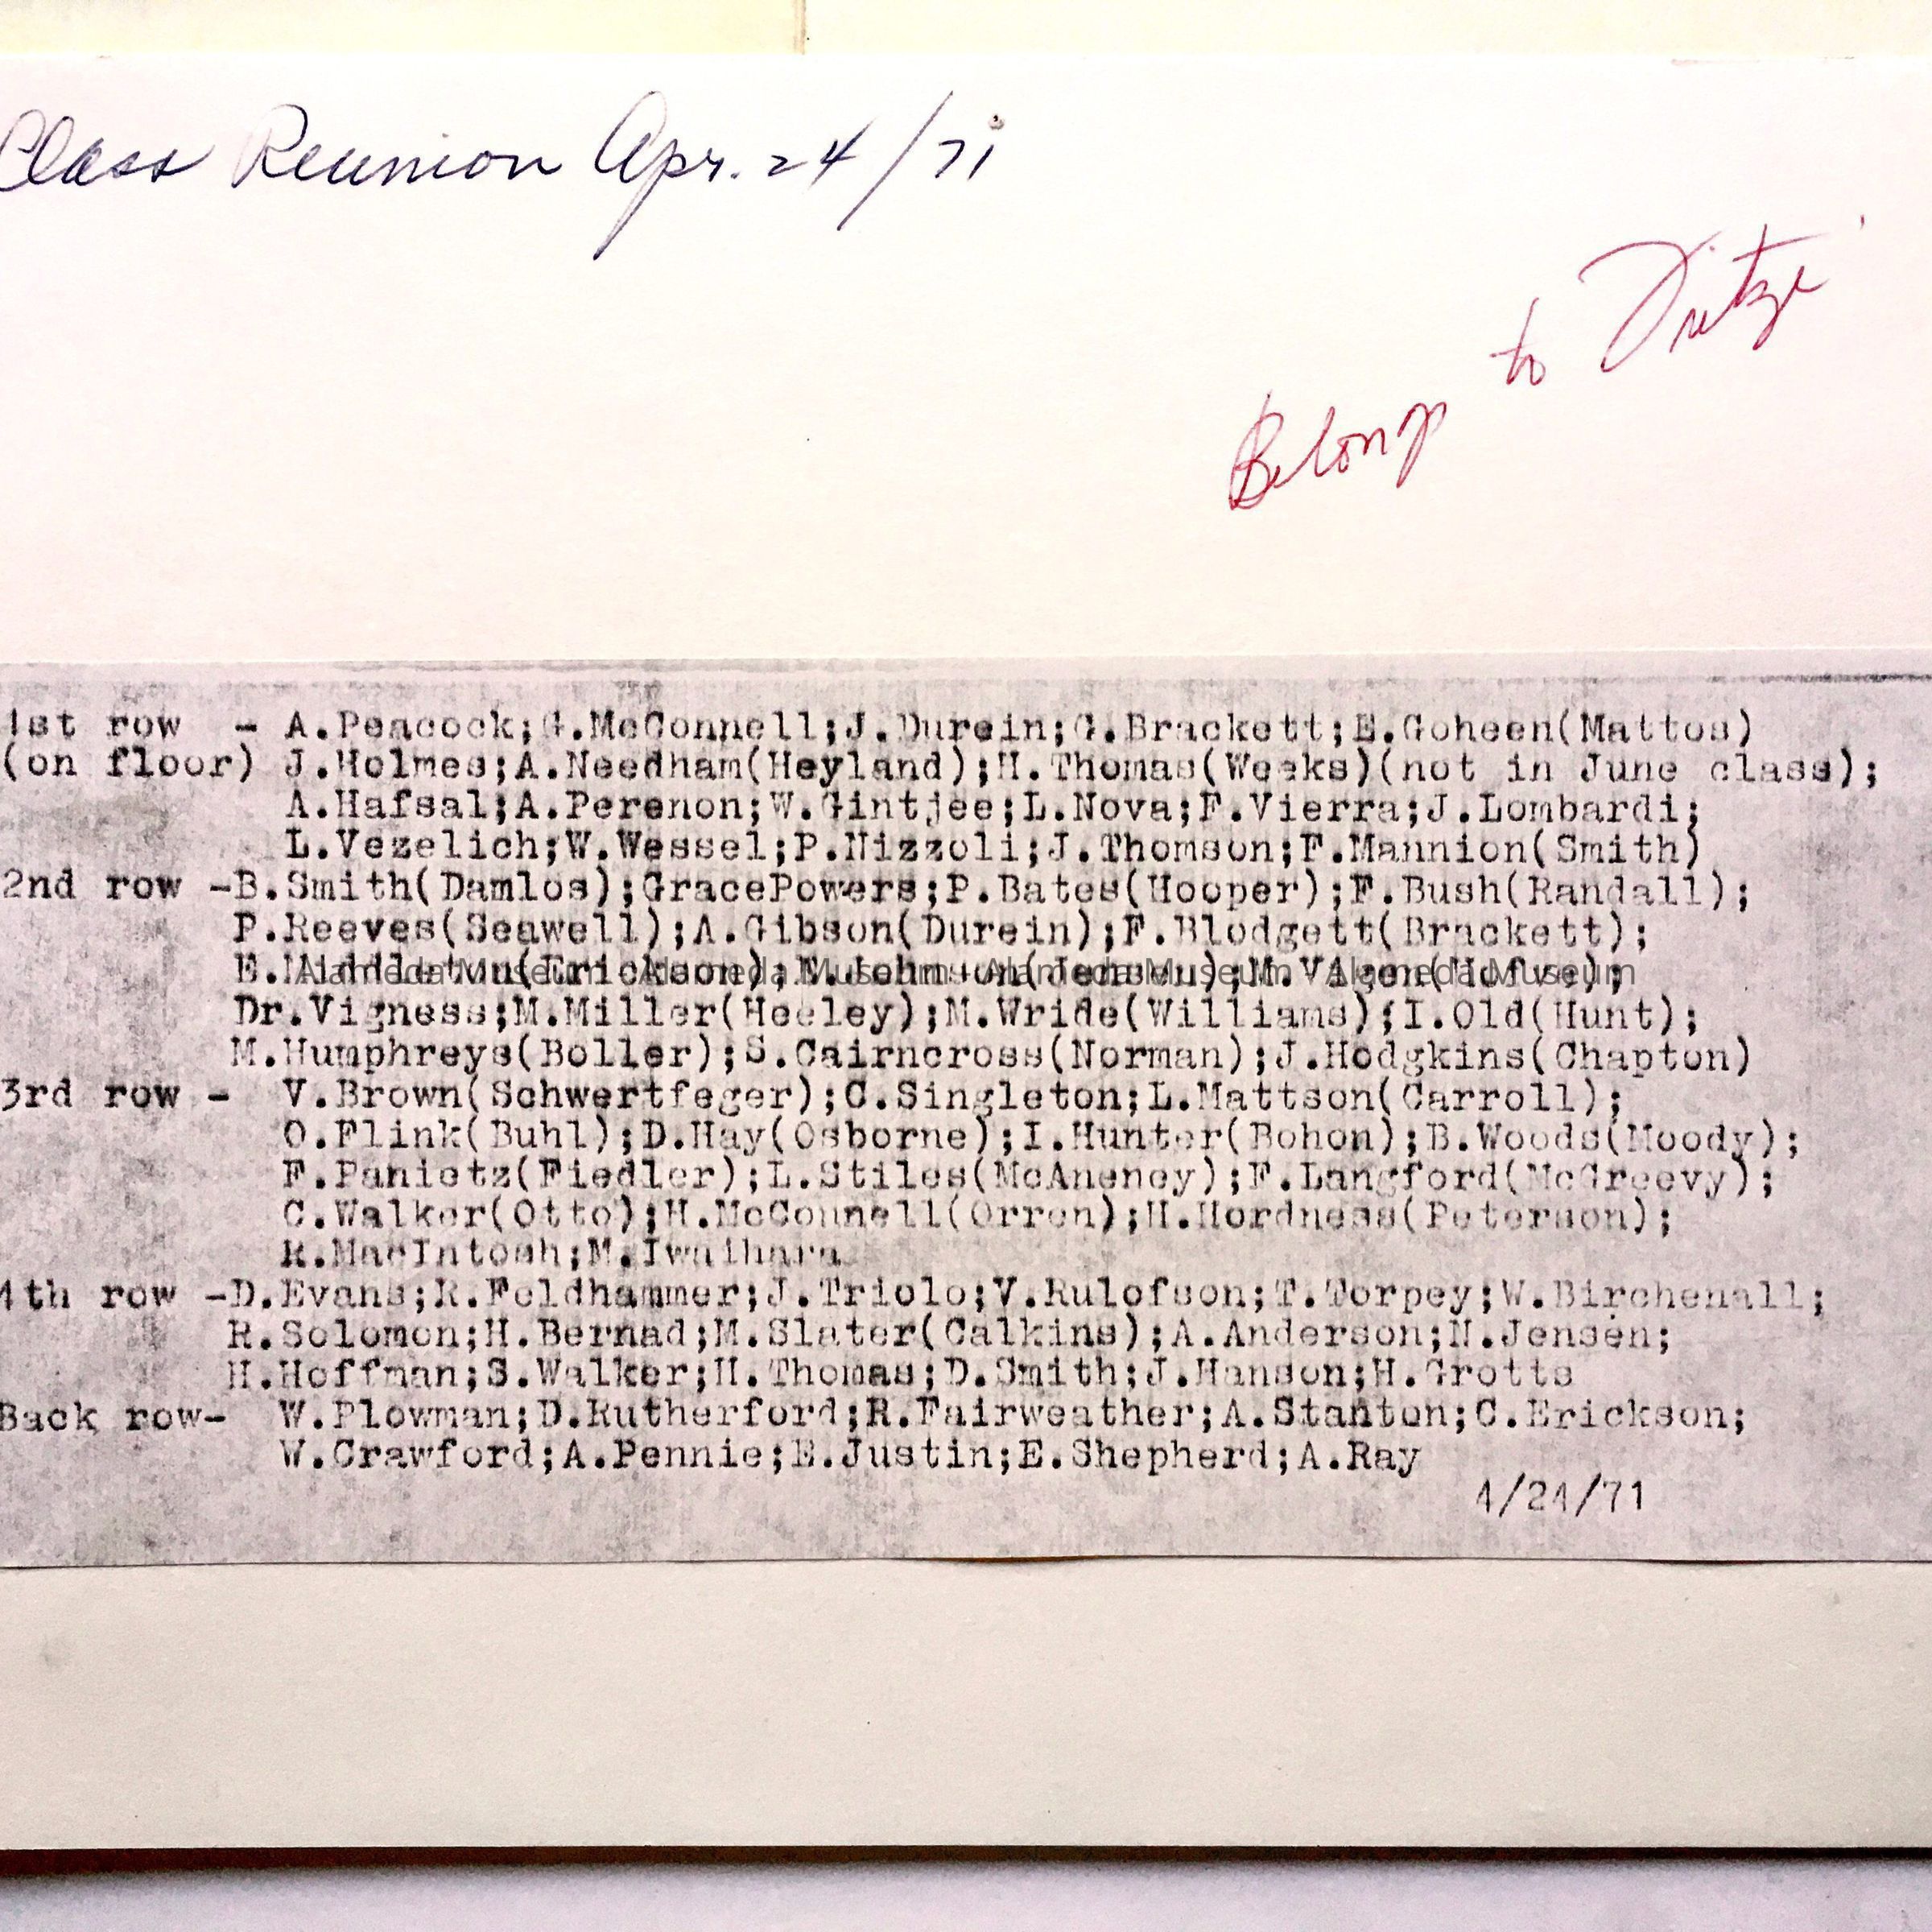 Class Reunion Apr. 24/71
Belong to
1st row - A.Peacock;G.McConnell;J.Durein;G.Brackett;E.Goheen(Mattos)
(on floor) J.Holmes;A.Needham(Heyland);H.Thomas(Weeks)(not in June class);
A.Hafsal;A.Perenon;W.Gintjee;L.Nova;F.Vierra;J.Lombardi;
L.Vezelich;W.Wessel;P.Nizzoli;J.Thomson;F.Mannion(Smith)
2nd row -B.Smith(Damlos);GracePowers;P.Bates(Hooper);F.Bush(Randall);
P.Reeves(Seawell);A.Gibson(Durein);F.Blodgett(Brackett);
E.Middleton(Erickson); (Jensen);
Alameda Museum Alameda Museum Alameda Museum Alameda Museum
Dr.Vigness;M.Miller(Heeley);M.Wride(Williams);I.Old(Hunt);
M.Humphreys(Boller);S.Cairncross(Norman);J.Hodgkins(Chapton)
3rd row - V.Brown(Schwertfeger);C.Singleton;L.Mattson(Carroll);
O.Flink(Buhl);D.Hay(Osborne);I.Hunter(Bohon);B.Woods(Moody);
F.Panietz(Fiedler);L.Stiles(McAneney);F.Langford(McGreevy);
C.Walker(Otto);H.McConnell(Orren);H.Hordness(Peterson);
R.MacIntosh;M.Iwaihara
4th row -D.Evans;R.Feldhammer;J.Triolo;V.Rulofson;T.Torpey;W.Birchenall;
R.Solomon;H.Bernad;M.Slater(Calkins);A.Anderson;N.Jensen;
H.Hoffman;S.Walker;H.Thomas;D.Smith;J.Hanson;H.Grotts
Back row- W.Plowman;D.Rutherford;R.Fairweather;A.Stanton;C.Erickson;
W.Crawford;A.Pennie;E.Justin;E.Shepherd;A.Ray
4/24/71